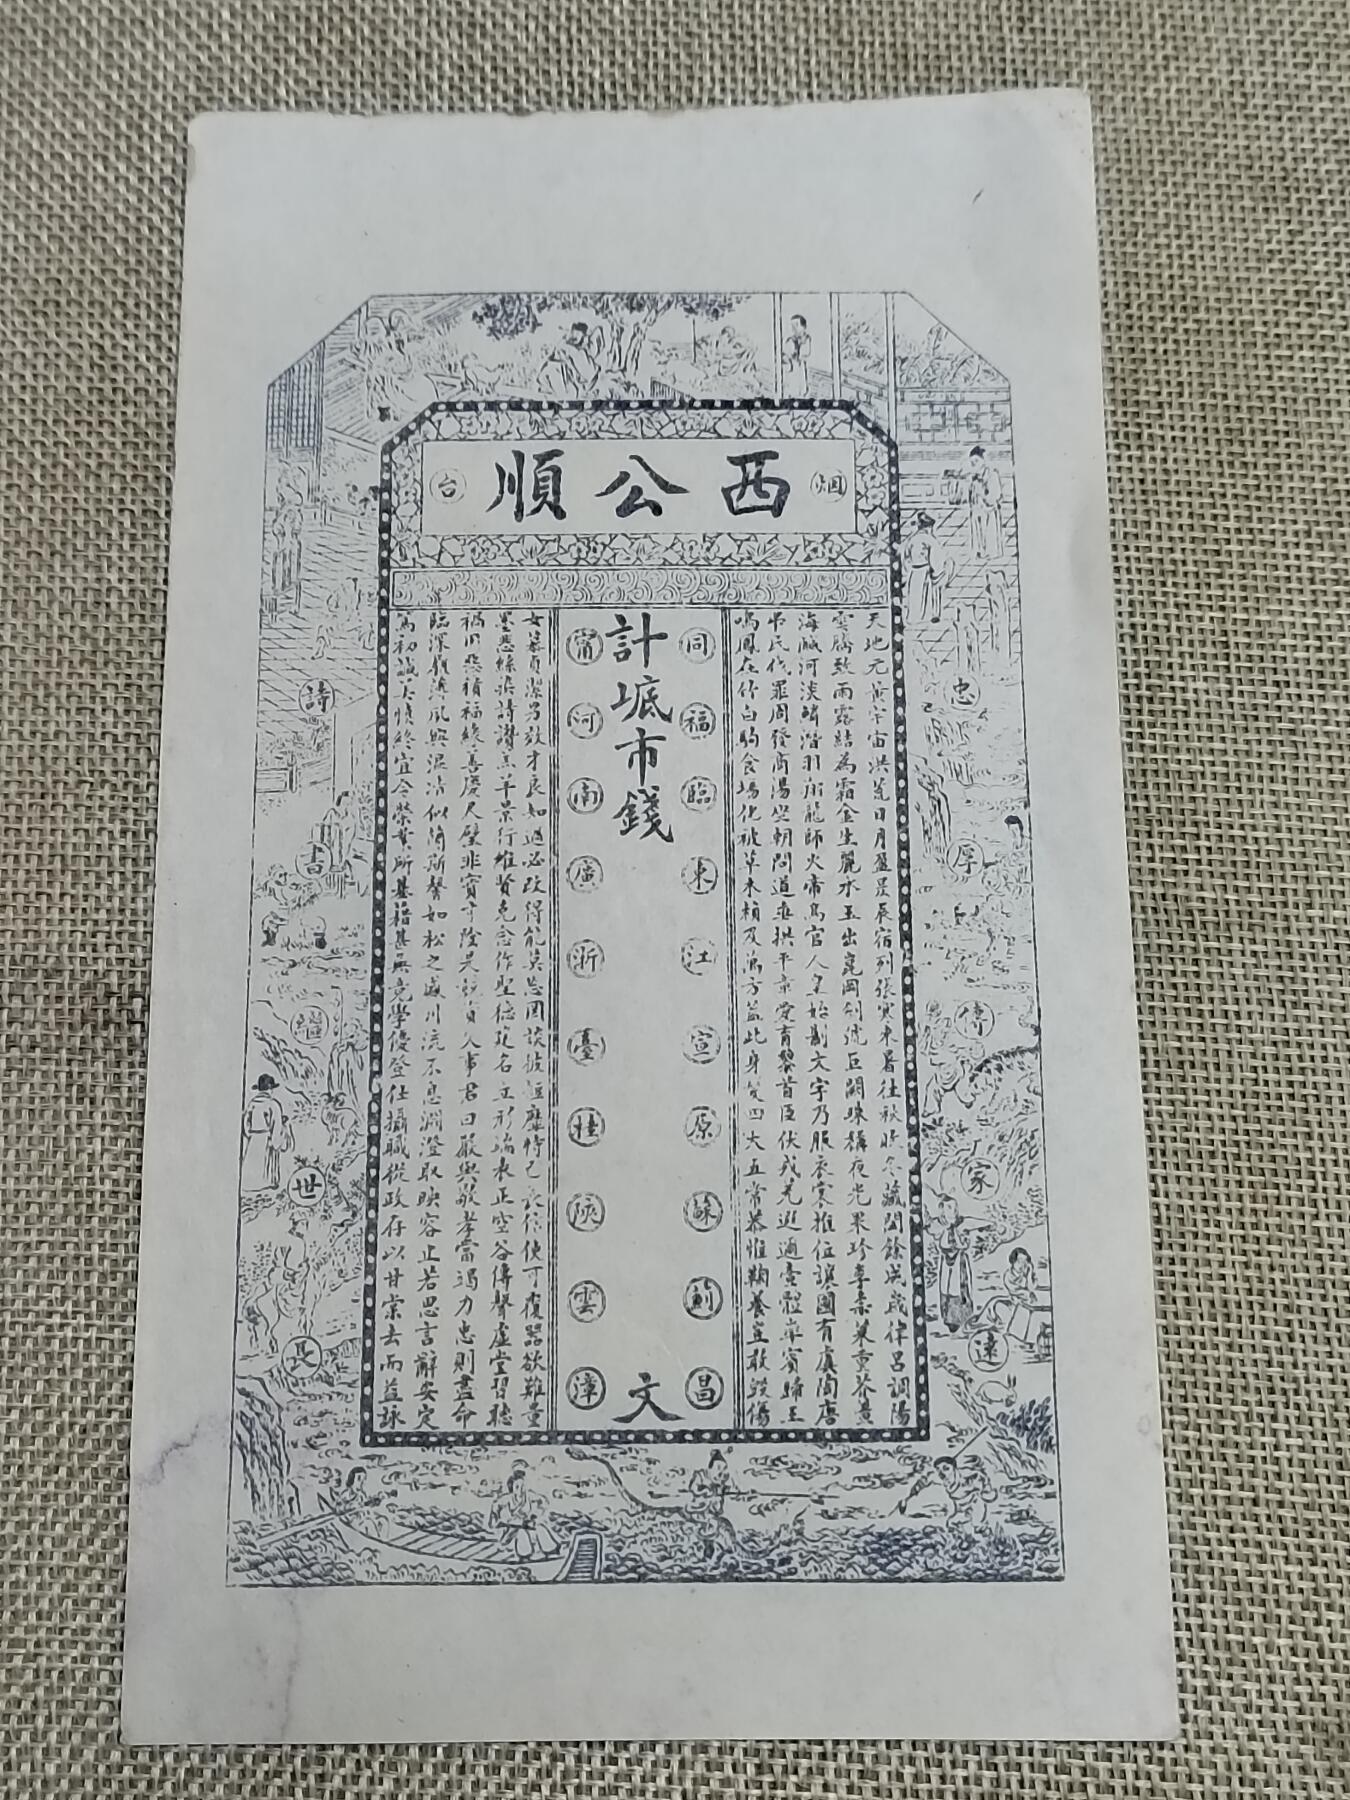 烟 西公順 台
忠厚傳家遠
天地元黃宇宙洪荒日月盈昃辰宿列張寒來暑往秋收冬藏閏餘成歲律呂調陽
雲騰致雨露結為霜金生麗水玉出崑岡劍號巨闕珠稱夜光果珍李柰菜重芥薑
海鹹河淡鱗潛羽翔龍師火帝鳥官人皇始制文字乃服衣裳推位讓國有虞陶唐
吊民伐罪周發商湯坐朝問道垂拱平章愛育黎首臣伏戎羌遐邇壹體率賓歸王
鳴鳳在竹白駒食場化被草木賴及萬方蓋此身髮四大五常恭惟鞠養豈敢毀傷
同福臨東江宣原蘇薊昌
計坻市錢 文
甯河南廣浙臺桂陝雲漳
女慕貞潔男效才良知過必改得能莫忘罔談彼短靡恃己長信使可覆器欲難量
墨悲絲染詩讚羔羊景行維賢克念作聖德建名立形端表正空谷傳聲虛堂習聽
禍因惡積福緣善慶尺璧非寶寸陰是競資父事君曰嚴與敬孝當竭力忠則盡命
臨深履薄夙興溫凊似蘭斯馨如松之盛川流不息淵澄取映容止若思言辭安定
篤初誠美慎終宜令榮業所基籍甚無竟學優登仕攝職從政存以甘棠去而益詠
詩書繼世長